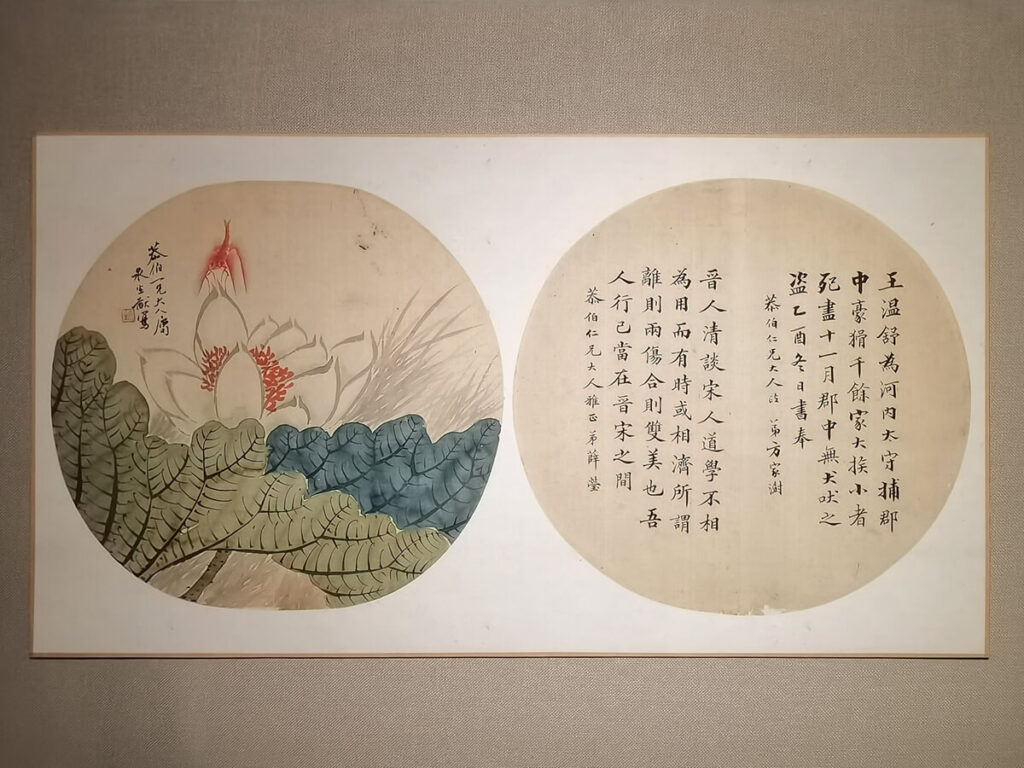 王温舒為河内太守捕郡
中豪猾千餘家大族小者
死盡十一月郡中無犬吠之
盜乙酉冬日書奉
恭伯仁兄大人政 弟方家澍
晋人清談宋人道學不相
為用而有時或相濟所謂
離則兩傷合則雙美也吾
人行己當在晋宋之間
恭伯仁兄大人雅正弟薛瑩
恭伯一兄大人屬